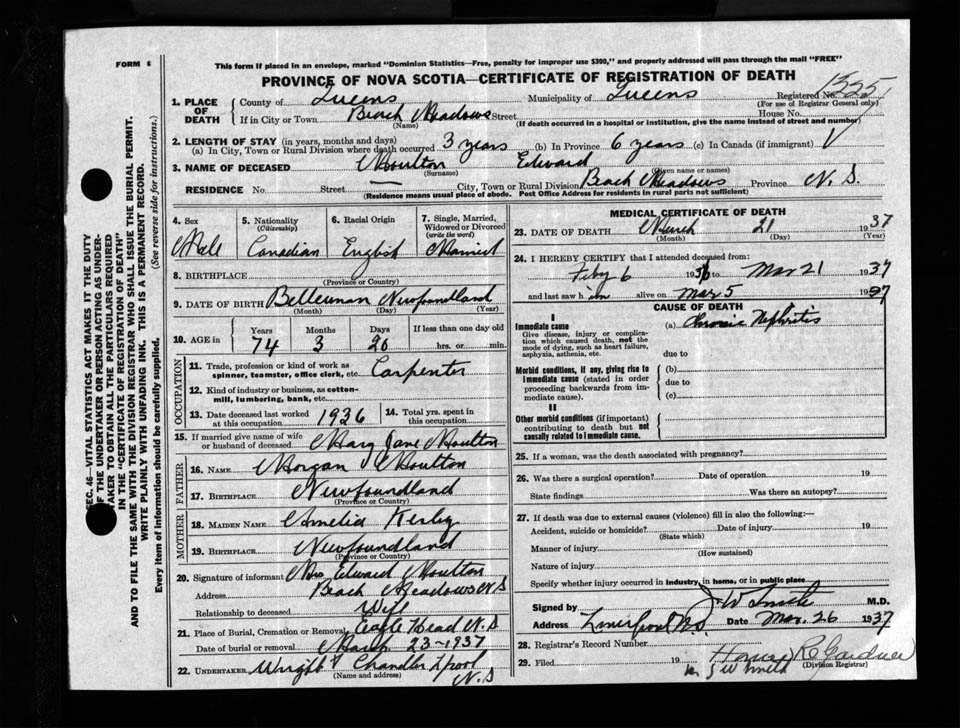 FORM 6
This form if placed in an envelope, marked "Dominion Statistics—Free, penalty for improper use $300," and properly addressed will pass through the mail "FREE"
PROVINCE OF NOVA SCOTIA—CERTIFICATE OF REGISTRATION OF DEATH
Registered No. 1325
(For use of Registrar General only)
1. PLACE OF DEATH County of Queens Municipality of Queens
If in City or Town Beach Meadows Street House No.
(Name) (If death occurred in a hospital or institution, give the name instead of street and number)
2. LENGTH OF STAY (in years, months and days)
(a) In City, Town or Rural Division where death occurred 3 years (b) In Province 6 years (c) In Canada (if immigrant)
3. NAME OF DECEASED Moulton Edward
(Surname) (Given name or names)
RESIDENCE No. Street City, Town or Rural Division Beach Meadows Province N. S.
(Residence means usual place of abode. Post Office Address for residents in rural parts not sufficient)
4. Sex Male
5. Nationality (Citizenship) Canadian
6. Racial Origin English
7. Single, Married, Widowed or Divorced (write the word) Married
8. BIRTHPLACE
(Province or Country)
9. DATE OF BIRTH Belleuman Newfoundland
(Month) (Day) (Year)
10. AGE in Years 74 Months 3 Days 20 If less than one day old hrs. or min.
OCCUPATION
11. Trade, profession or kind of work as spinner, teamster, office clerk, etc. Carpenter
12. Kind of industry or business, as cotton-mill, lumbering, bank, etc.
13. Date deceased last worked at this occupation 1936
14. Total yrs. spent in this occupation
15. If married give name of wife or husband of deceased Mary Jane Moulton
FATHER
16. NAME Morgan Moulton
17. BIRTHPLACE Newfoundland
(Province or Country)
MOTHER
18. MAIDEN NAME Amelia Kerby
19. BIRTHPLACE Newfoundland
(Province or Country)
20. Signature of informant Mrs Edward Moulton
Address Beach Meadows N.S
Relationship to deceased Wife
21. Place of Burial, Cremation or Removal Eagle Head N.S
Date of burial or removal March 23-1937
22. UNDERTAKER Wright Chandler
(Name and address) N.S
MEDICAL CERTIFICATE OF DEATH
23. DATE OF DEATH March 21 1937
(Month) (Day) (Year)
24. I HEREBY CERTIFY that I attended deceased from:
Feby 6 193 to Mar 21 1937
and last saw him alive on Mar 5 1937
CAUSE OF DEATH
I
Immediate cause (a) Chronic Nephritis
Give disease, injury or complication which caused death, not the mode of dying, such as heart failure, asphyxia, asthenia, etc. due to
Morbid conditions, if any, giving rise to immediate cause (stated in order proceeding backwards from immediate cause). (b)
due to
(c)
II
Other morbid conditions (if important) contributing to death but not causally related to immediate cause.
25. If a woman, was the death associated with pregnancy?
26. Was there a surgical operation? Date of operation 19
State findings Was there an autopsy?
27. If death was due to external causes (violence) fill in also the following:—
Accident, suicide or homicide? Date of injury 19
(State which)
Manner of injury
(How sustained)
Nature of injury
Specify whether injury occurred in industry, in home, or in public place
Signed by J W Smith M.D.
Address Liverpool N.S. Date Mar. 26 1937
28. Registrar's Record Number
29. Filed 19 R C Gardner
(Division Registrar)
J W Smith
SEC. 46—VITAL STATISTICS ACT MAKES IT THE DUTY
OF THE UNDERTAKER OR PERSON ACTING AS UNDER-
TAKER TO OBTAIN ALL THE PARTICULARS REQUIRED
IN THE "CERTIFICATE OF REGISTRATION OF DEATH"
AND TO FILE THE SAME WITH THE DIVISION REGISTRAR WHO SHALL ISSUE THE BURIAL PERMIT.
WRITE PLAINLY WITH UNFADING INK. THIS IS A PERMANENT RECORD.
Every item of information should be carefully supplied. (See reverse side for instructions.)